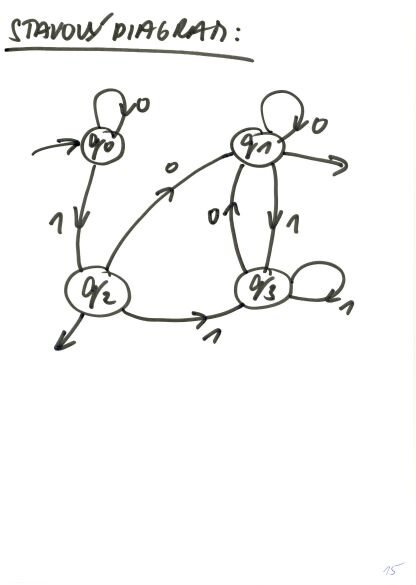 STAVOVÝ DIAGRAM:
0
0
q0
q1
0
1
0
1
q2
q3
1
1
15